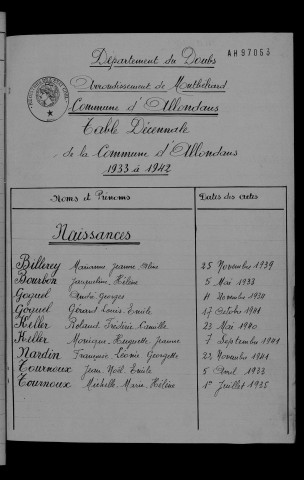 Département du Doubs
AH97053
Arrondissement de Montbéliard
Commune d'Allondans
Table Décennale
de la Commune d'Allondans
1933 à 1942
Noms et Prénoms Dates des actes
Naissances
Billerey Marianne Jeanne 25 Novembre 1939
Bourbon Jacqueline Hélène 5 Mai 1933
Goguel André Georges 11 1930
Goguel Gérard Louis Emile 17 Octobre 1941
Keller Roland Frédéric Camille 23 Mai 1940
Keller Monique Huguette Jeanne 7 Septembre 1941
Nardin Françoise Léonie Georgette 22 Novembre 1941
Tournoux Jean Noël Emile 5 Avril 1933
Tournoux Michelle Marie Hélène 1er Juillet 1935